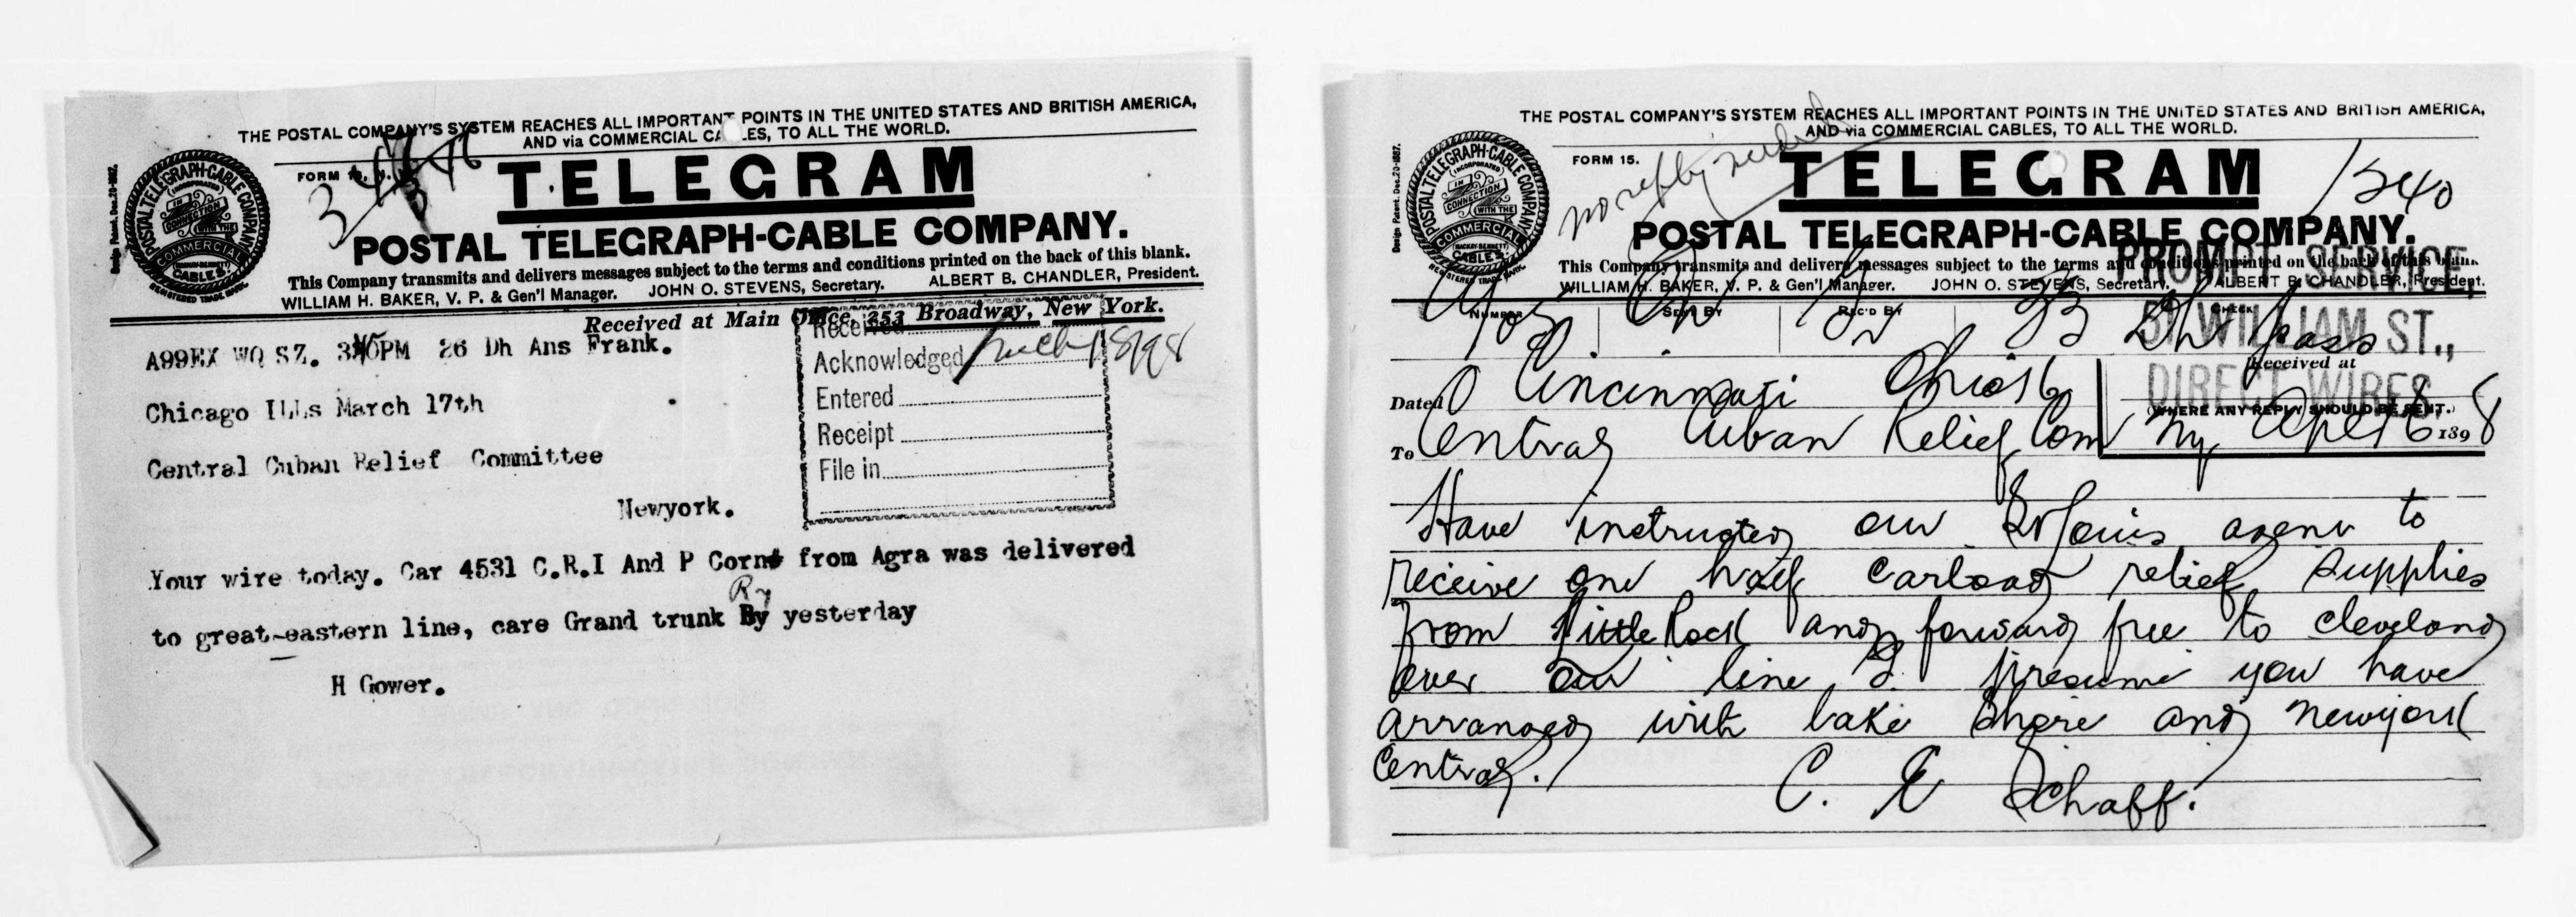 THE POSTAL COMPANY'S SYSTEM REACHES ALL IMPORTANT POINTS IN THE UNITED STATES AND BRITISH AMERICA,
AND via COMMERCIAL CA LES, TO ALL THE WORLD.
FORM
TELEGRAM
POSTAL TELEGRAPH-CABLE COMPANY.
This Company transmits and delivers messages subject to the terms and conditions printed on the back of this blank.
WILLIAM H. BAKER, V. P. & Gen'l Manager. JOHN O. STEVENS, Secretary. ALBERT B. CHANDLER, President.
Design Patent.
POSTAL TELEGRAPH-CABLE COMPANY
(INCORPORATED)
IN CONNECTION WITH THE
COMMERCIAL CABLES.
REGISTERED TRADE MARK.
Received at Main Office, 253 Broadway, New York.
Received
Acknowledged Mch 18/98
Entered
Receipt
File in
A99EX WQ SZ. 3 PM 26 Dh Ans Frank.
Chicago ILLs March 17th
Central Cuban Relief Committee
Newyork.
Your wire today. Car 4531 C.R.I And P Corn from Agra was delivered
Ry
to great-eastern line, care Grand trunk By yesterday
H Gower.
THE POSTAL COMPANY'S SYSTEM REACHES ALL IMPORTANT POINTS IN THE UNITED STATES AND BRITISH AMERICA,
AND via COMMERCIAL CABLES, TO ALL THE WORLD.
FORM 15.
no reply needed
TELEGRAM
1240
POSTAL TELEGRAPH-CABLE COMPANY.
This Company transmits and delivers messages subject to the terms and conditions printed on the back of this blank.
WILLIAM H. BAKER, V. P. & Gen'l Manager. JOHN O. STEVENS, Secretary. ALBERT B. CHANDLER, President.
Design Patent.
POSTAL TELEGRAPH-CABLE COMPANY
(INCORPORATED)
IN CONNECTION WITH THE
COMMERCIAL
(MACKAY-BENNETT)
CABLES.
REGISTERED TRADE MARK.
PROMPT SERVICE,
51 WILLIAM ST.,
DIRECT WIRES.
NUMBER SENT BY REC'D BY CHECK
Dh
Received at
(WHERE ANY REPLY SHOULD BE SENT.)
Dated Cincinnati Ohio 6
To Central Cuban Relief Com Ny Apl 6 1898
Have instructed our St Louis agent to
receive one half carload relief supplies
from Little Rock and forward free to cleveland
over our line I presume you have
arranged with lake Shore and Newyork
Central.
C. E Schaff.